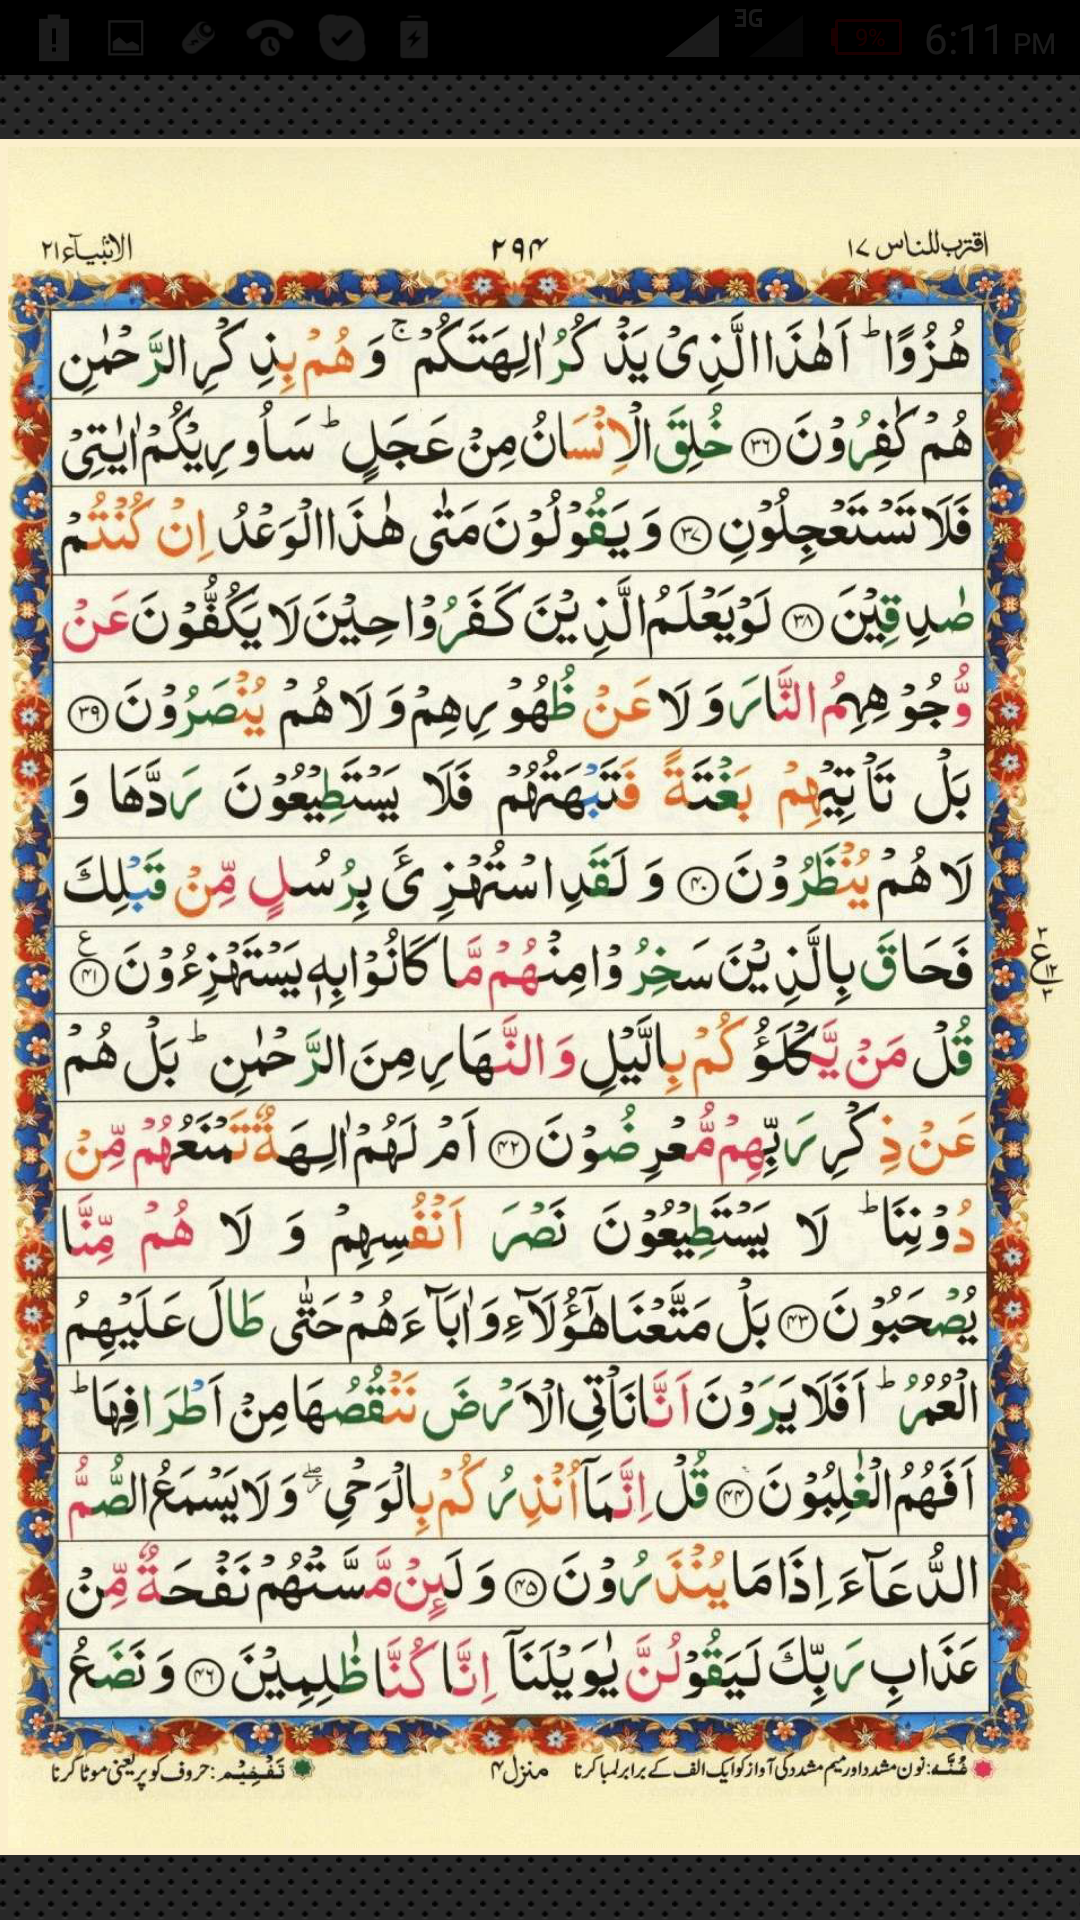 3G 9% 6:11 PM
اقترب للناس ١٧ ٢٩۴ الانبیآء ٢١
هُزُوًا ؕ اَهٰذَا الَّذِیْ یَذْكُرُ اٰلِهَتَكُمْ ۚ وَ هُمْ بِذِكْرِ الرَّحْمٰنِ
هُمْ كٰفِرُوْنَ ﴿۳۶﴾ خُلِقَ الْاِنْسَانُ مِنْ عَجَلٍ ؕ سَاُورِیْكُمْ اٰیٰتِیْ
فَلَا تَسْتَعْجِلُوْنِ ﴿۳۷﴾ وَ یَقُوْلُوْنَ مَتٰی هٰذَا الْوَعْدُ اِنْ كُنْتُمْ
صٰدِقِیْنَ ﴿۳۸﴾ لَوْ یَعْلَمُ الَّذِیْنَ كَفَرُوْا حِیْنَ لَا یَكُفُّوْنَ عَنْ
وُّجُوْهِهِمُ النَّارَ وَ لَا عَنْ ظُهُوْرِهِمْ وَ لَا هُمْ یُنْصَرُوْنَ ﴿۳۹﴾
بَلْ تَاْتِیْهِمْ بَغْتَةً فَتَبْهَتُهُمْ فَلَا یَسْتَطِیْعُوْنَ رَدَّهَا وَ
لَا هُمْ یُنْظَرُوْنَ ﴿۴۰﴾ وَ لَقَدِ اسْتُهْزِئَ بِرُسُلٍ مِّنْ قَبْلِكَ
فَحَاقَ بِالَّذِیْنَ سَخِرُوْا مِنْهُمْ مَّا كَانُوْا بِهٖ یَسْتَهْزِءُوْنَ ﴿۴۱﴾ ع
٣ ع ١٢ ٣
قُلْ مَنْ یَّكْلَؤُكُمْ بِالَّیْلِ وَ النَّهَارِ مِنَ الرَّحْمٰنِ ؕ بَلْ هُمْ
عَنْ ذِكْرِ رَبِّهِمْ مُّعْرِضُوْنَ ﴿۴۲﴾ اَمْ لَهُمْ اٰلِهَةٌ تَمْنَعُهُمْ مِّنْ
دُوْنِنَا ؕ لَا یَسْتَطِیْعُوْنَ نَصْرَ اَنْفُسِهِمْ وَ لَا هُمْ مِّنَّا
یُصْحَبُوْنَ ﴿۴۳﴾ بَلْ مَتَّعْنَا هٰۤؤُلَآءِ وَ اٰبَآءَهُمْ حَتّٰی طَالَ عَلَیْهِمُ
الْعُمُرُ ؕ اَفَلَا یَرَوْنَ اَنَّا نَاْتِی الْاَرْضَ نَنْقُصُهَا مِنْ اَطْرَافِهَا ؕ
اَفَهُمُ الْغٰلِبُوْنَ ﴿۴۴﴾ قُلْ اِنَّمَاۤ اُنْذِرُكُمْ بِالْوَحْیِ ۖ٘ وَ لَا یَسْمَعُ الصُّمُّ
الدُّعَآءَ اِذَا مَا یُنْذَرُوْنَ ﴿۴۵﴾ وَ لَىِٕنْ مَّسَّتْهُمْ نَفْحَةٌ مِّنْ
عَذَابِ رَبِّكَ لَیَقُوْلُنَّ یٰوَیْلَنَاۤ اِنَّا كُنَّا ظٰلِمِیْنَ ﴿۴۶﴾ وَ نَضَعُ
غُنَّہ: نون مشدد اور میم مشدد کی آواز کو ایک الف کے برابر لمبا کرنا منزل ۴ تَفْخِیْم: حروف کو پُر یعنی موٹا کرنا